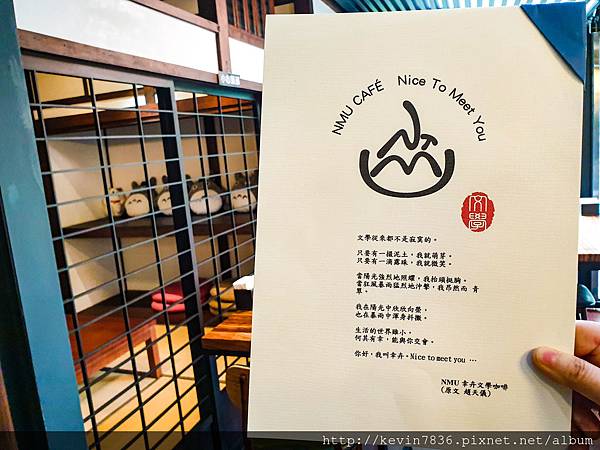 NMU CAFÉ Nice To Meet You
文學
文學從來都不是寂寞的。
只要有一撮泥土，我就萌芽。
只要有一滴露珠，我就微笑。
當陽光強烈地照耀，我抬頭挺胸。
當狂風暴雨猛烈地沖擊，我昂然而 青
翠。
我在陽光中欣欣向榮，
也在暴雨中渾身抖擻。
生活的世界雖小，
何其有幸，能與你交會。
你好，我叫幸卉。Nice to meet you …
NMU 幸卉文學咖啡
(原文 趙天儀)
http://kevin7836.pixnet.net/album